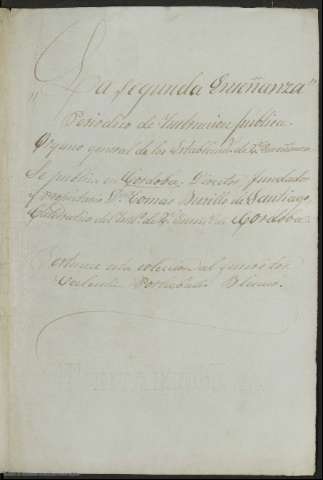 "La segunda Enseñanza"
Periodico de Instruccion pública.
Organo general de los Establecim.tos de 2.a Enseñanza
Se publica en Córdoba. Director fundador
y propietario D.n Tomas de Santiago,
Catedratico del de 2.a de Córdoba.
Pertenece esta coleccion al
Valentin Portabales Blanco.